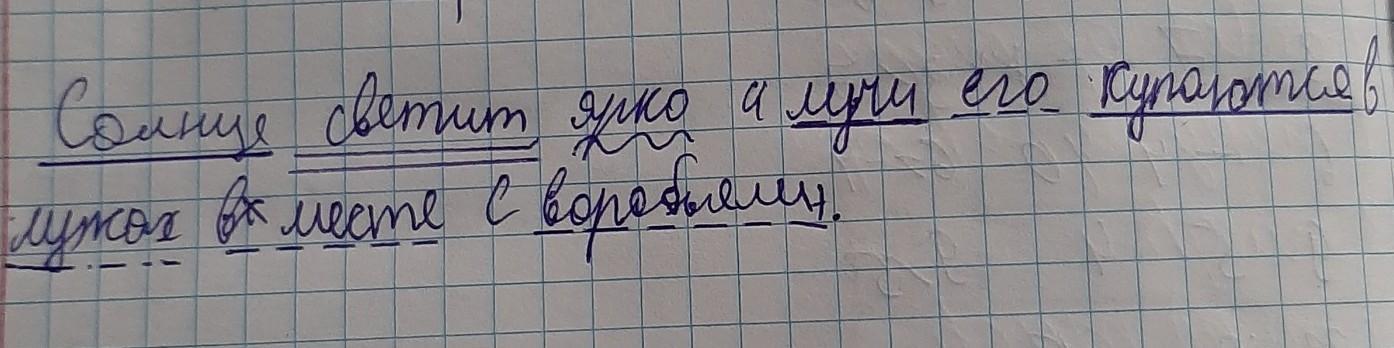 Солнце светит ярко а лучи его купаются в
лужах в месте с воробьями.